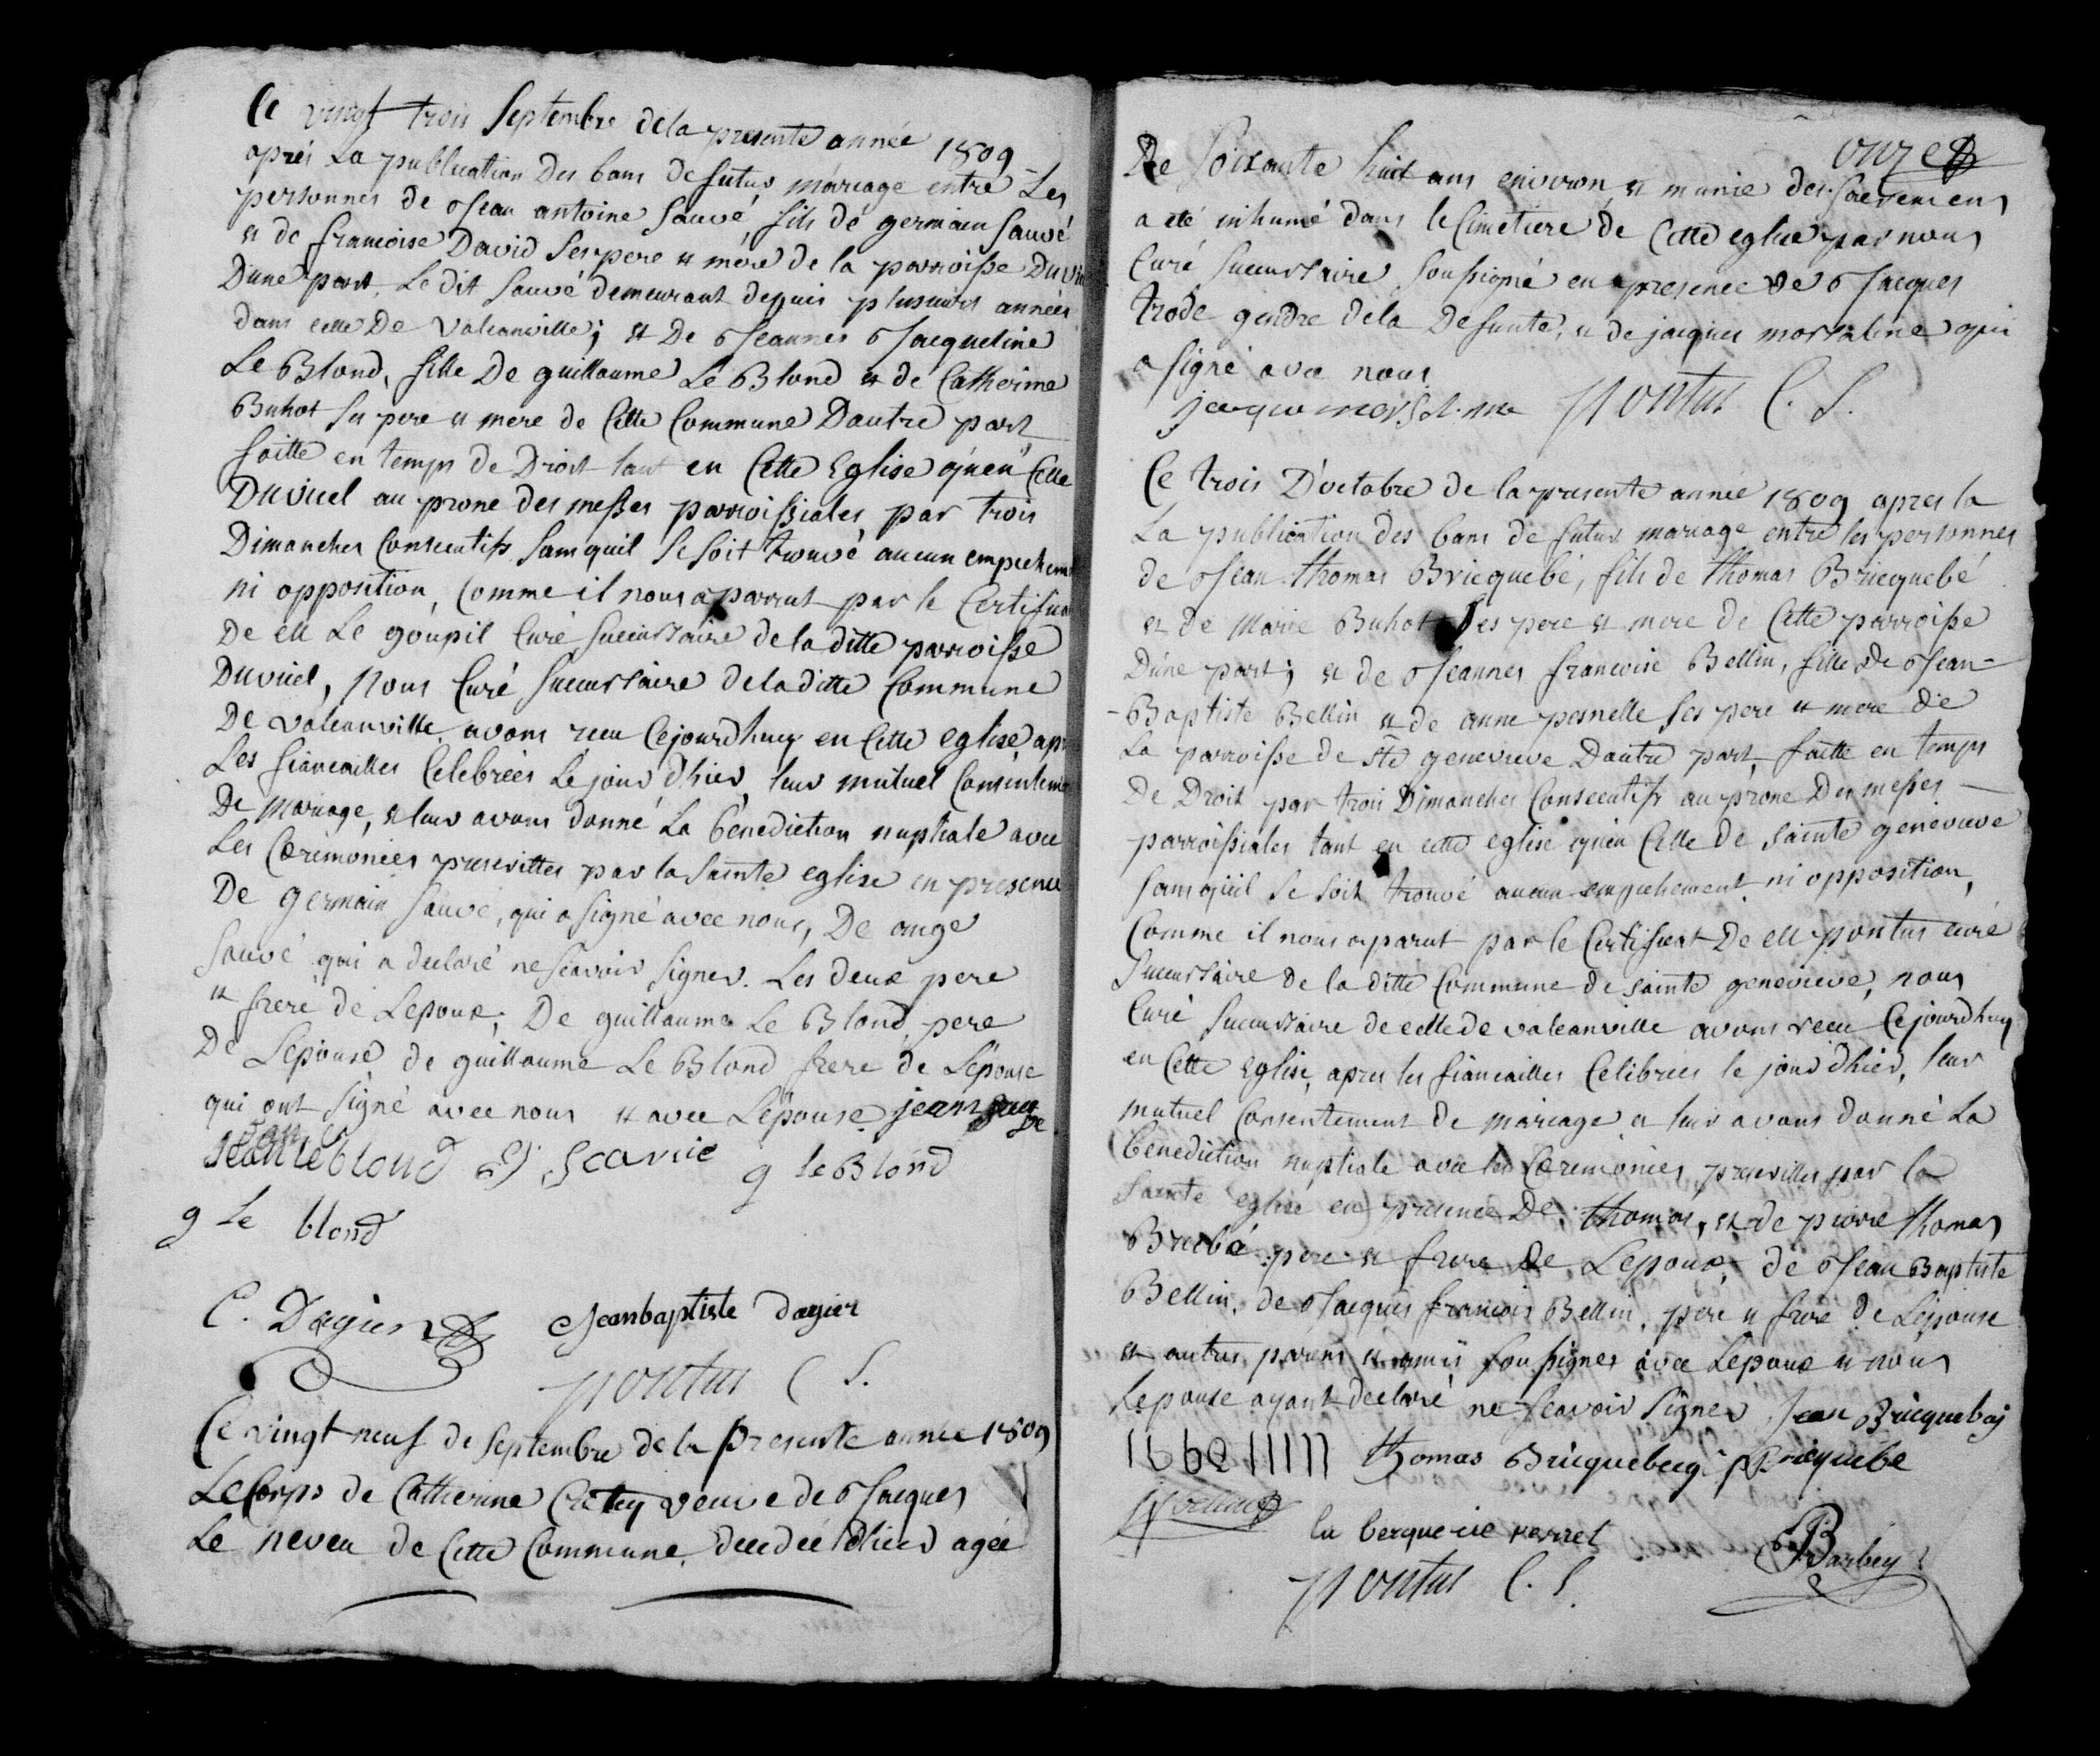 Ce vingt trois Septembre dela presente année 1809
aprés La publication Des bans de futur mariage entre Les
personnes de Jean antoine Sauvé, fils de germain Sauvé
et de francoise David Ses pere et mére de la parroisse Duvic
Dune part. Le dit Sauvé demeurant depuis plusieurs années
dans celle De Valcanville; et De Jeannes Jacqueline
Le Blond, fille De guillaume Le Blond et de Catherine
Buhot ses pere et mere de Cette Commune Dautre part
faitte en temps de Droit tant en Cette Eglise qu'en Celle
Duvicel au prone des messes parroissiales par trois
Dimanches Consecutifs Sans quil Se Soit trouvé aucun empechem
ni opposition, Comme il nous aparrut par le Certificat
De M Le goupil Curé Succursaire de la ditte parroisse
Duvicel, Nous Curé Succursaire dela ditte Commune
De valcanville avons recu Cejourdhuy en Cette eglise, apr
Les fiancailles Celebrées Le jour d'hier, leur mutuel Consentem
De mariage, et leur avons donné La bénediction nuptiale avec
Les Cæremonies prescrittes par la Sainte eglise en presence
De germain Sauvé, qui a signé avec nous, De ange
Sauvé qui a declaré ne scavoir signer. Les deux pere
et frere de Lepoux; De guillaume Le Blond pere
De Lépouse, de guillaume Le Blond frere de Lépouse
qui ont signé avec nous et avec Lépouse jean
leblond g le Blond
g Le blond
C. Dagier Jeanbaptiste Dagier
pontus C S.
Ce vingt-neuf de Septembre de la presente année 1809
Le Corps de Catherine veuve de Jacques
Le neveu de Cette Commune, decedée d'hier agée
onze
De Soixante huit ans environ, et munie des Sacremens
a eté inhumé dans le Cimetiere de Cette eglise par nous
Curé Succursaire Soussigné en presence de Jacques
trode gendre dela Defunte, et de jacques morsaline qui
a signé avec nous
pontus C. S.
Ce trois D'octobre de la presente année 1809 apres la
La publication des bans de futur mariage entre les personnes
de Jean thomas Bricquebé, fils de thomas Bricquebé
et de Marie Buhot Ses pere et mere de Cette parroisse
D'une part; et de Jeannes francoise Bellin, fille De Jean-
-Baptiste Bellin et de anne pesnelle ses pere et mere de
La parroisse de Ste genevieve Dautre part, faitte en temps
De Droit par trois Dimanches Consecutifs au prone Des messes -
parroissiales tant en cette eglise qu'en Celle de Sainte genevieve
sans qu'il se soit trouvé aucun empechement ni opposition,
Comme il nous aparut par le Certificat De M pontus curé
Succursaire de la ditte Commune de sainte genevieve, nous
Curé Succursaire de celle de valcanville avons recu Cejourdhuy
en Cette Eglise, apres les fiancailles Celebrées le jour d'hier, leur
mutuel Consentement de mariage et leur avons donné La
benediction nuptiale avec les Cæremonies prescrittes par la
Sainte eglise en presence De thomas, et de pierre thomas
Brecbé pere et frere De Lepoux, de Jean Baptiste
Bellin, de Jacques francois Bellin, pere et frere de Lépouse
et autres parens et amis soussignes avec Lepoux et nous
Lepouse ayant declaré ne scavoir signer. Jean
thomas Bricquebecq p Bricquebe
la berquerie
Barbey
pontus C. S.